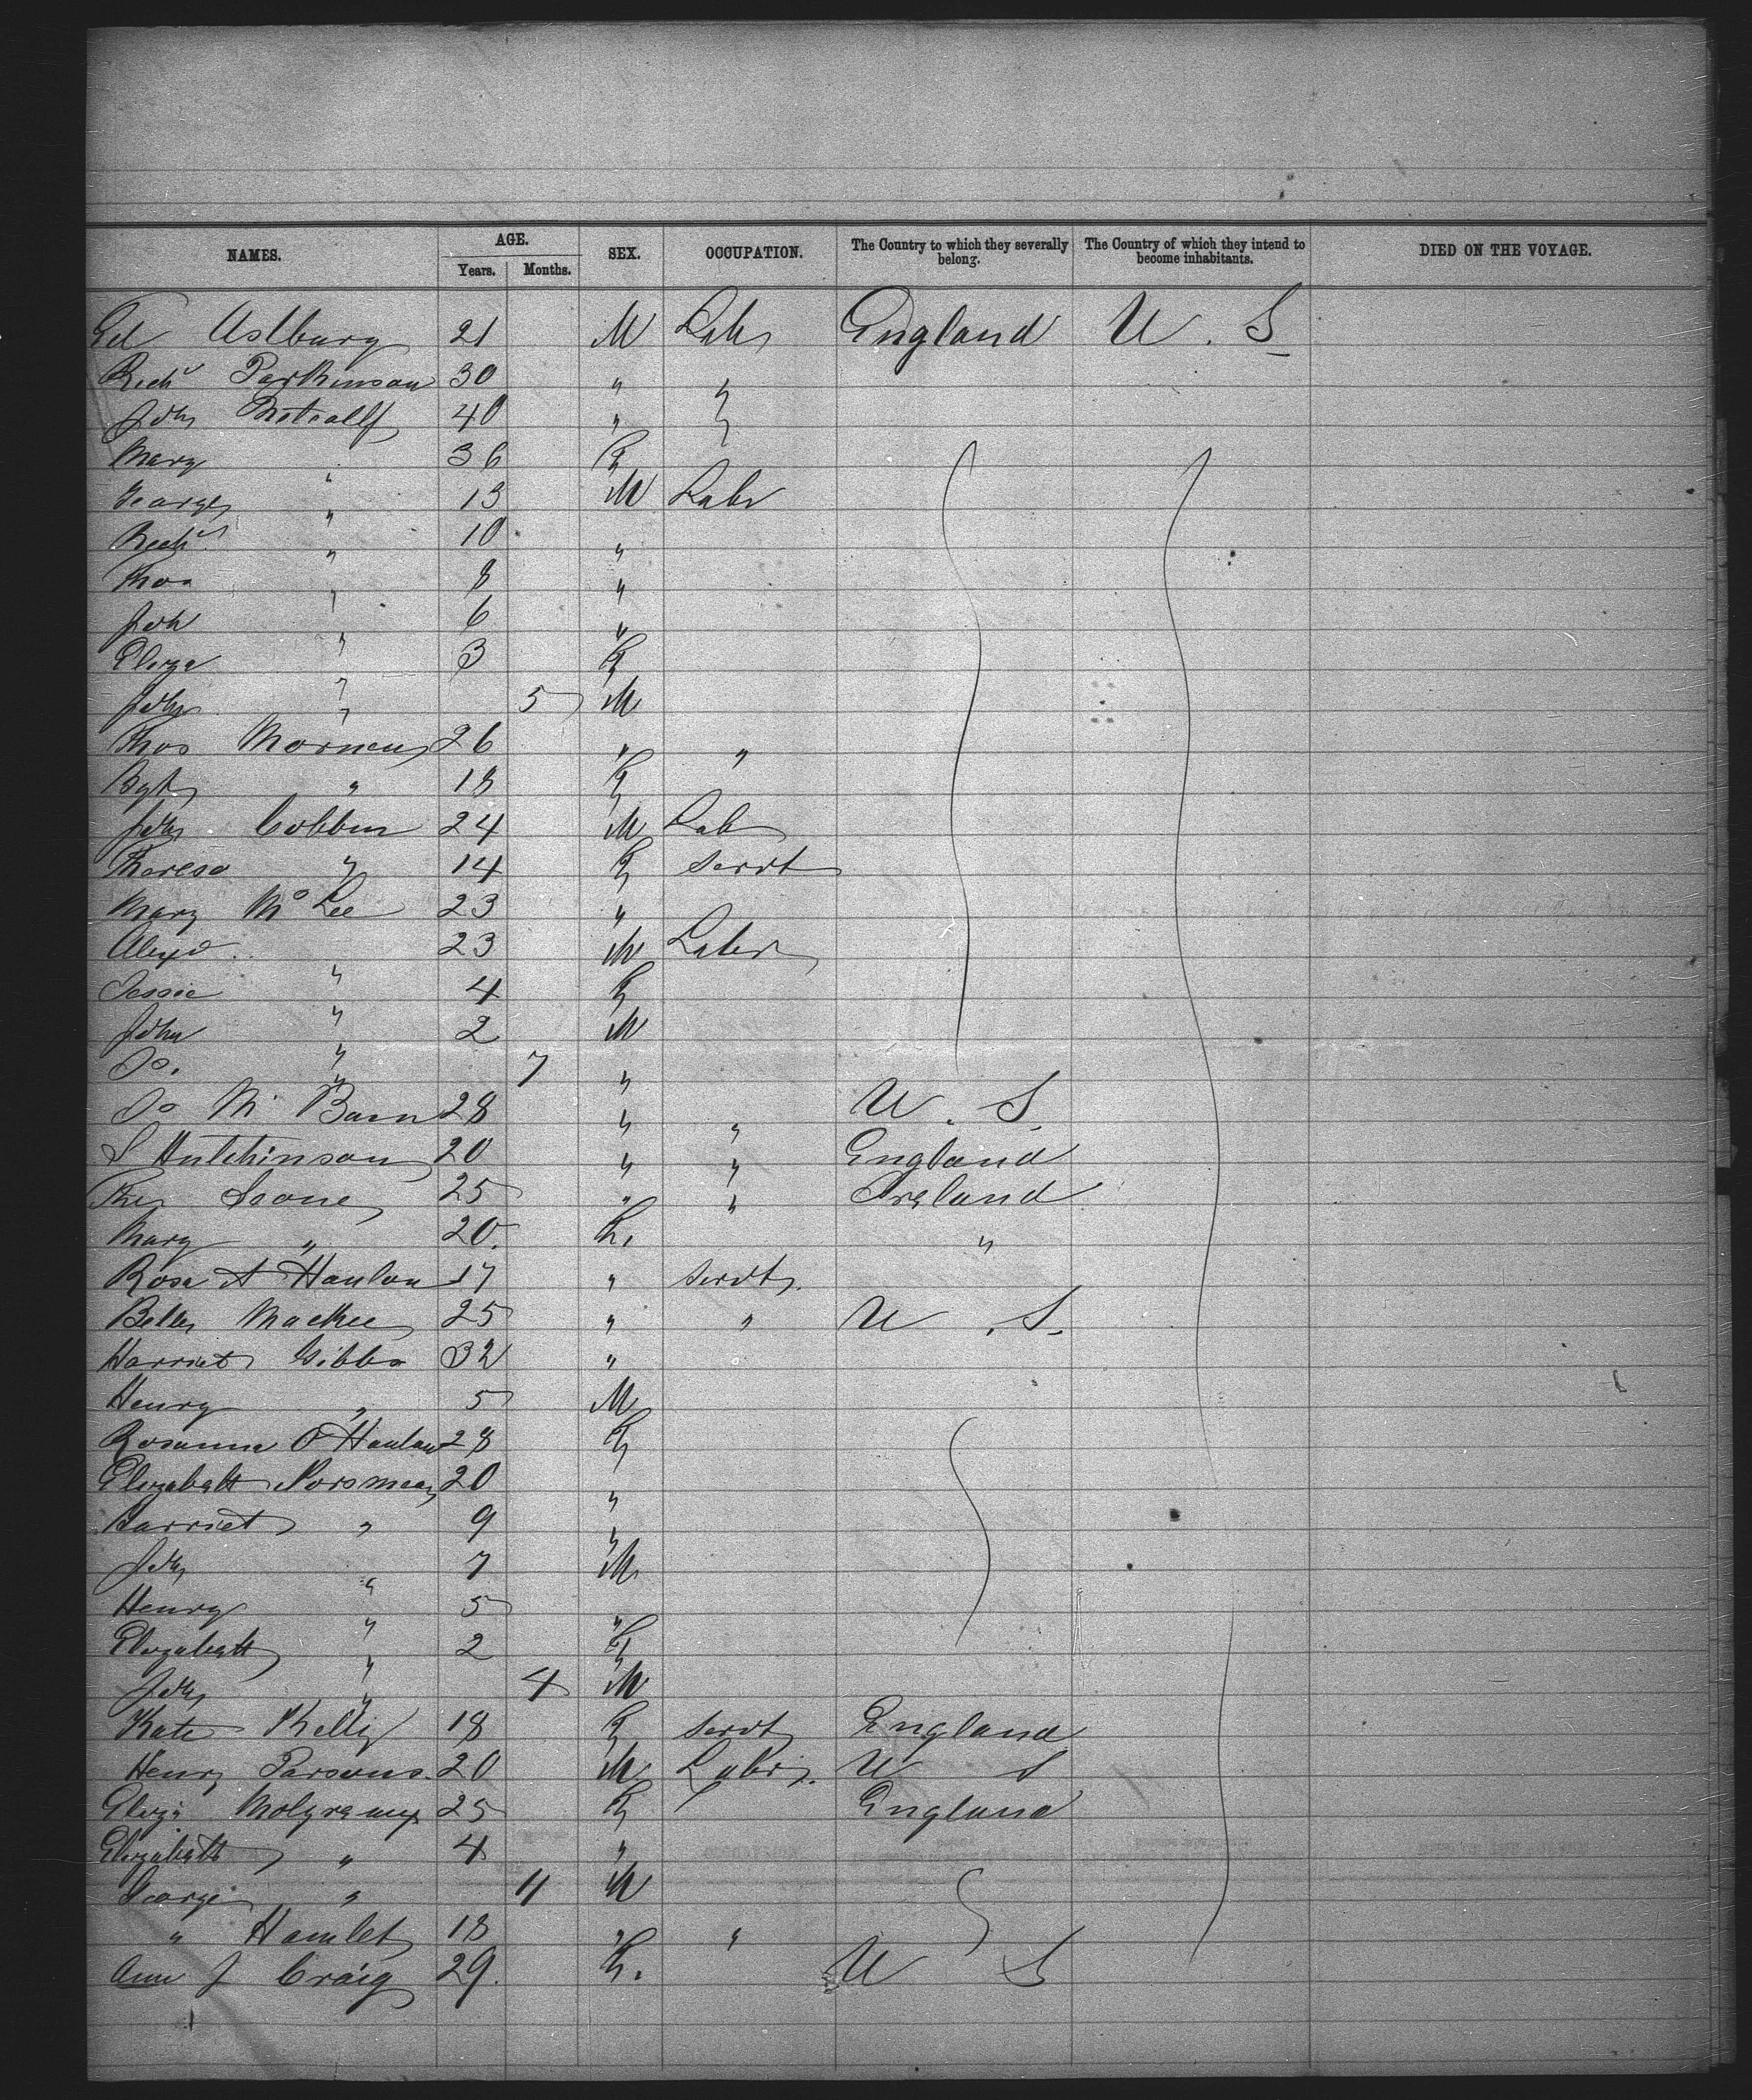 NAMES. AGE. Years. Months. SEX. OCCUPATION. The Country to which they severally belong. The Country of which they intend to become inhabitants. DIED ON THE VOYAGE.
Ed Astbury 21 M Labr England U. S
Richd Parkinson 30 " "
Jno Metcalf 40 " "
Mary " 36 F
George " 13 M Labr
Richd " 10 "
Thos " 8 "
Joh " 6 "
Eliza " 3 F
John " 5 M
Thos 26 " "
Bgt " 18 F
John Cobbin 24 M Labr
Theresa " 14 F Servt
Mary McLee 23 "
Alexd " 23 M Labor
Jessie " 4 F
John " 2 M
Do. " 7 "
Do Mc Barn 28 " " U. S.
S Hutchinson 20 " " England
25 " " Ireland
Mary " 20. F. "
Rosa A Hanlon 17 " Servt
Bella Mackee 25 " " U. S.
Harriet Gibbs 32 "
Henry " 5 M
Rosanna O'Hanlan 28 F
Elizabeth 20 "
Harriet " 9 "
John " 7 M
Henry " 5 "
Elizabeth " 2 F
John " 4 M
Kate Kelly 18 F Servt England
Henry Parsons. 20 M Labr. U S
Eliza 25 F England
Elizabeth " 4 "
George " 11 M
" Hamlet 18 " "
Ann J Craig 29. F. U S